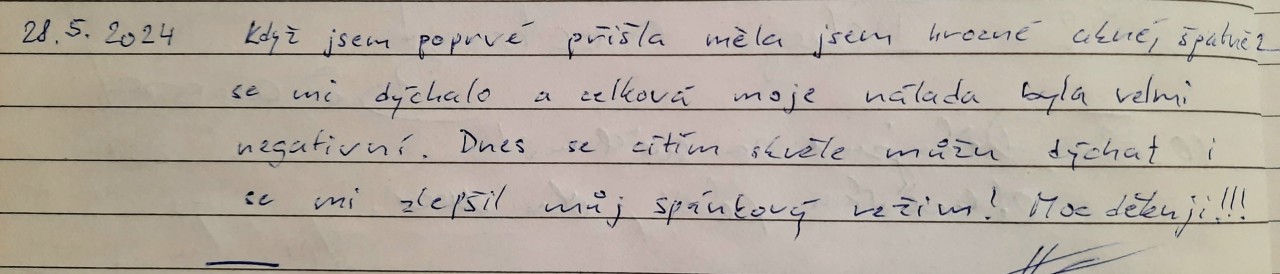 28.5.2024 Když jsem poprvé přišla měla jsem hrozné akné, špatně
se mi dýchalo a celková moje nálada byla velmi
negativní. Dnes se cítím skvěle můžu dýchat i
se mi zlepšil můj spánkový režim! Moc děkuji!!!